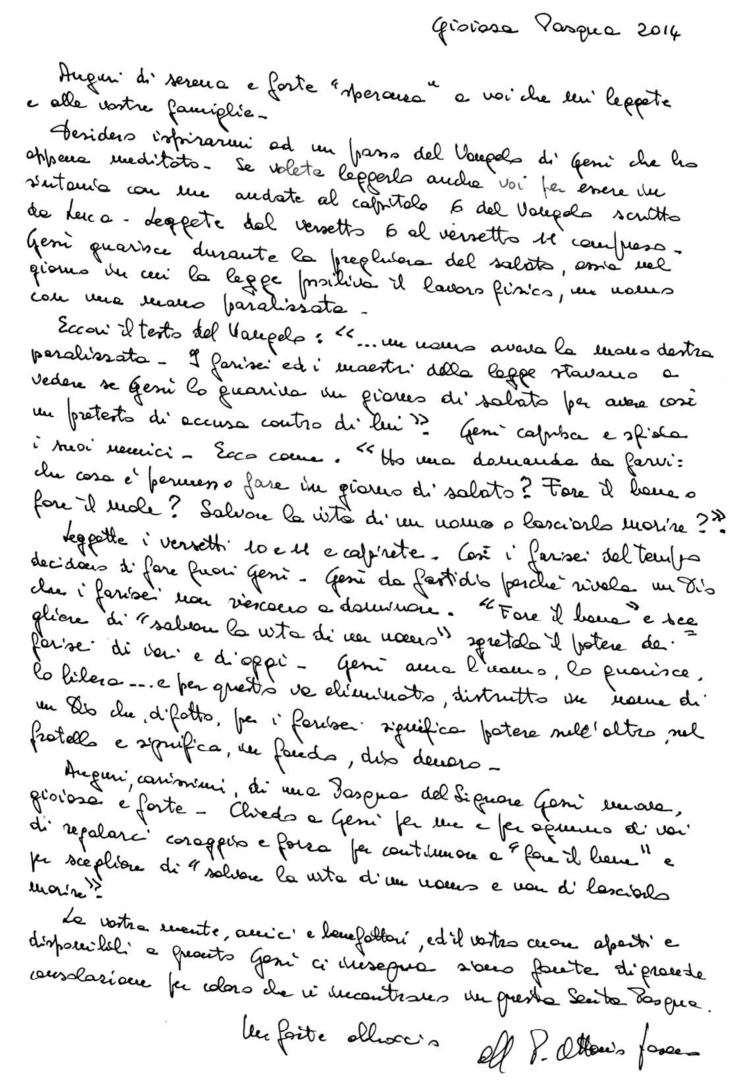 Gioiosa Pasqua 2014
Auguri di serena e forte "speranza" a voi che mi leggete
e alle vostre famiglie.
Desidero ispirarmi ad un passo del Vangelo di Gesù che ho
appena meditato. Se volete leggerlo anche voi per essere in
sintonia con me andate al capitolo 6 del Vangelo scritto
da Luca. Leggete dal versetto 6 al versetto 11 compreso.
Gesù guarisce durante la preghiera del sabato, ossia nel
giorno in cui la legge proibiva il lavoro fisico, un uomo
con una mano paralizzata.
Eccovi il testo del Vangelo: «...un uomo aveva la mano destra
paralizzata. I farisei ed i maestri della legge stavano a
vedere se Gesù lo guariva in giorno di sabato per avere così
un pretesto di accusa contro di lui». Gesù capisce e sfida
i suoi nemici. Ecco come. «Ho una domanda da farvi:
che cosa è permesso fare in giorno di sabato? Fare il bene o
fare il male? Salvare la vita di un uomo o lasciarlo morire??».
Leggette i versetti 10 e 11 e capirete. Così i farisei del tempo
decidono di fare fuori Gesù. Gesù da fastidio perché rivela un Dio
che i farisei non riescono a dominare. "Fare il bene" e sce
gliere di "salvare la vita di un uomo" sgretola il potere dei
farisei di ieri e di oggi. Gesù ama l'uomo, lo guarisce,
lo libera... e per questo va eliminato, distrutto in nome di
un Dio che, difatto, per i farisei significa potere sull'altro, sul
fratello e significa, in fondo, dio denaro.
Auguri, carissimi, di una Pasqua del Signore Gesù nuova,
gioiosa e forte. Chiedo a Gesù per me e per ognuno di voi
di regalarci coraggio e forza per continuare a "fare il bene" e
per scegliere di "salvare la vita di un uomo e non di lasciarlo
morire".
La vostra mente, amici e benefattori, ed il vostro cuore aperti e
disponibili a quanto Gesù ci insegna siano fonte di grande
consolazione per coloro che vi incontrano in questa Santa Pasqua.
Un forte abbraccio aff P. Ottavio